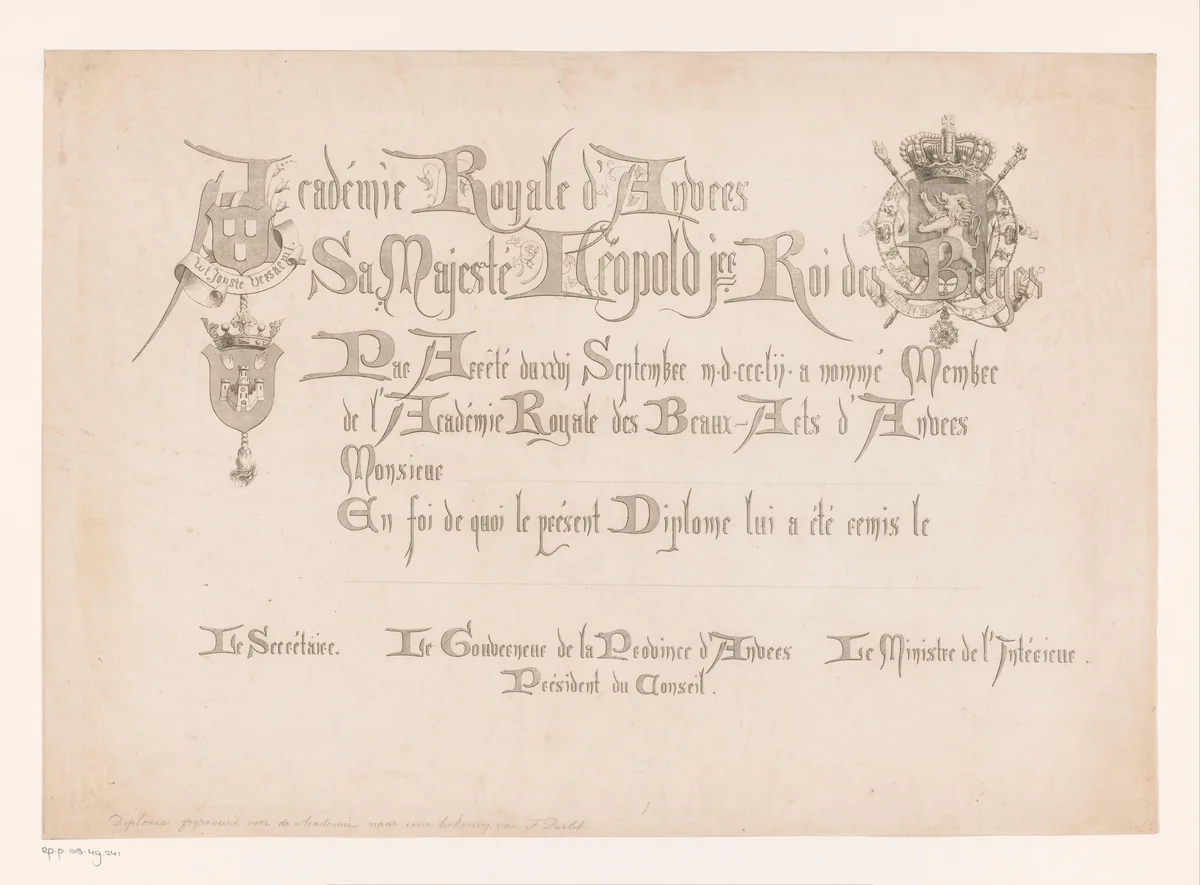 Académie Royale d'Anvers
Wt Jonste Versaemt.
Sa Majesté Léopold jer Roi des Belges
Par Arrêté du xxvj Septembre m·d·ccc·lij· a nommé Membre
de l'Académie Royale des Beaux-Arts d'Anvers
Monsieur
En foi de quoi le présent Diplome lui a été remis le
Le Secrétaire. Le Gouverneur de la Province d'Anvers Le Ministre de l'Intérieur.
Président du Conseil.
Diploma gegraveerd voor de Academie naar eene teekening van F.
RP-P-OB-49.241